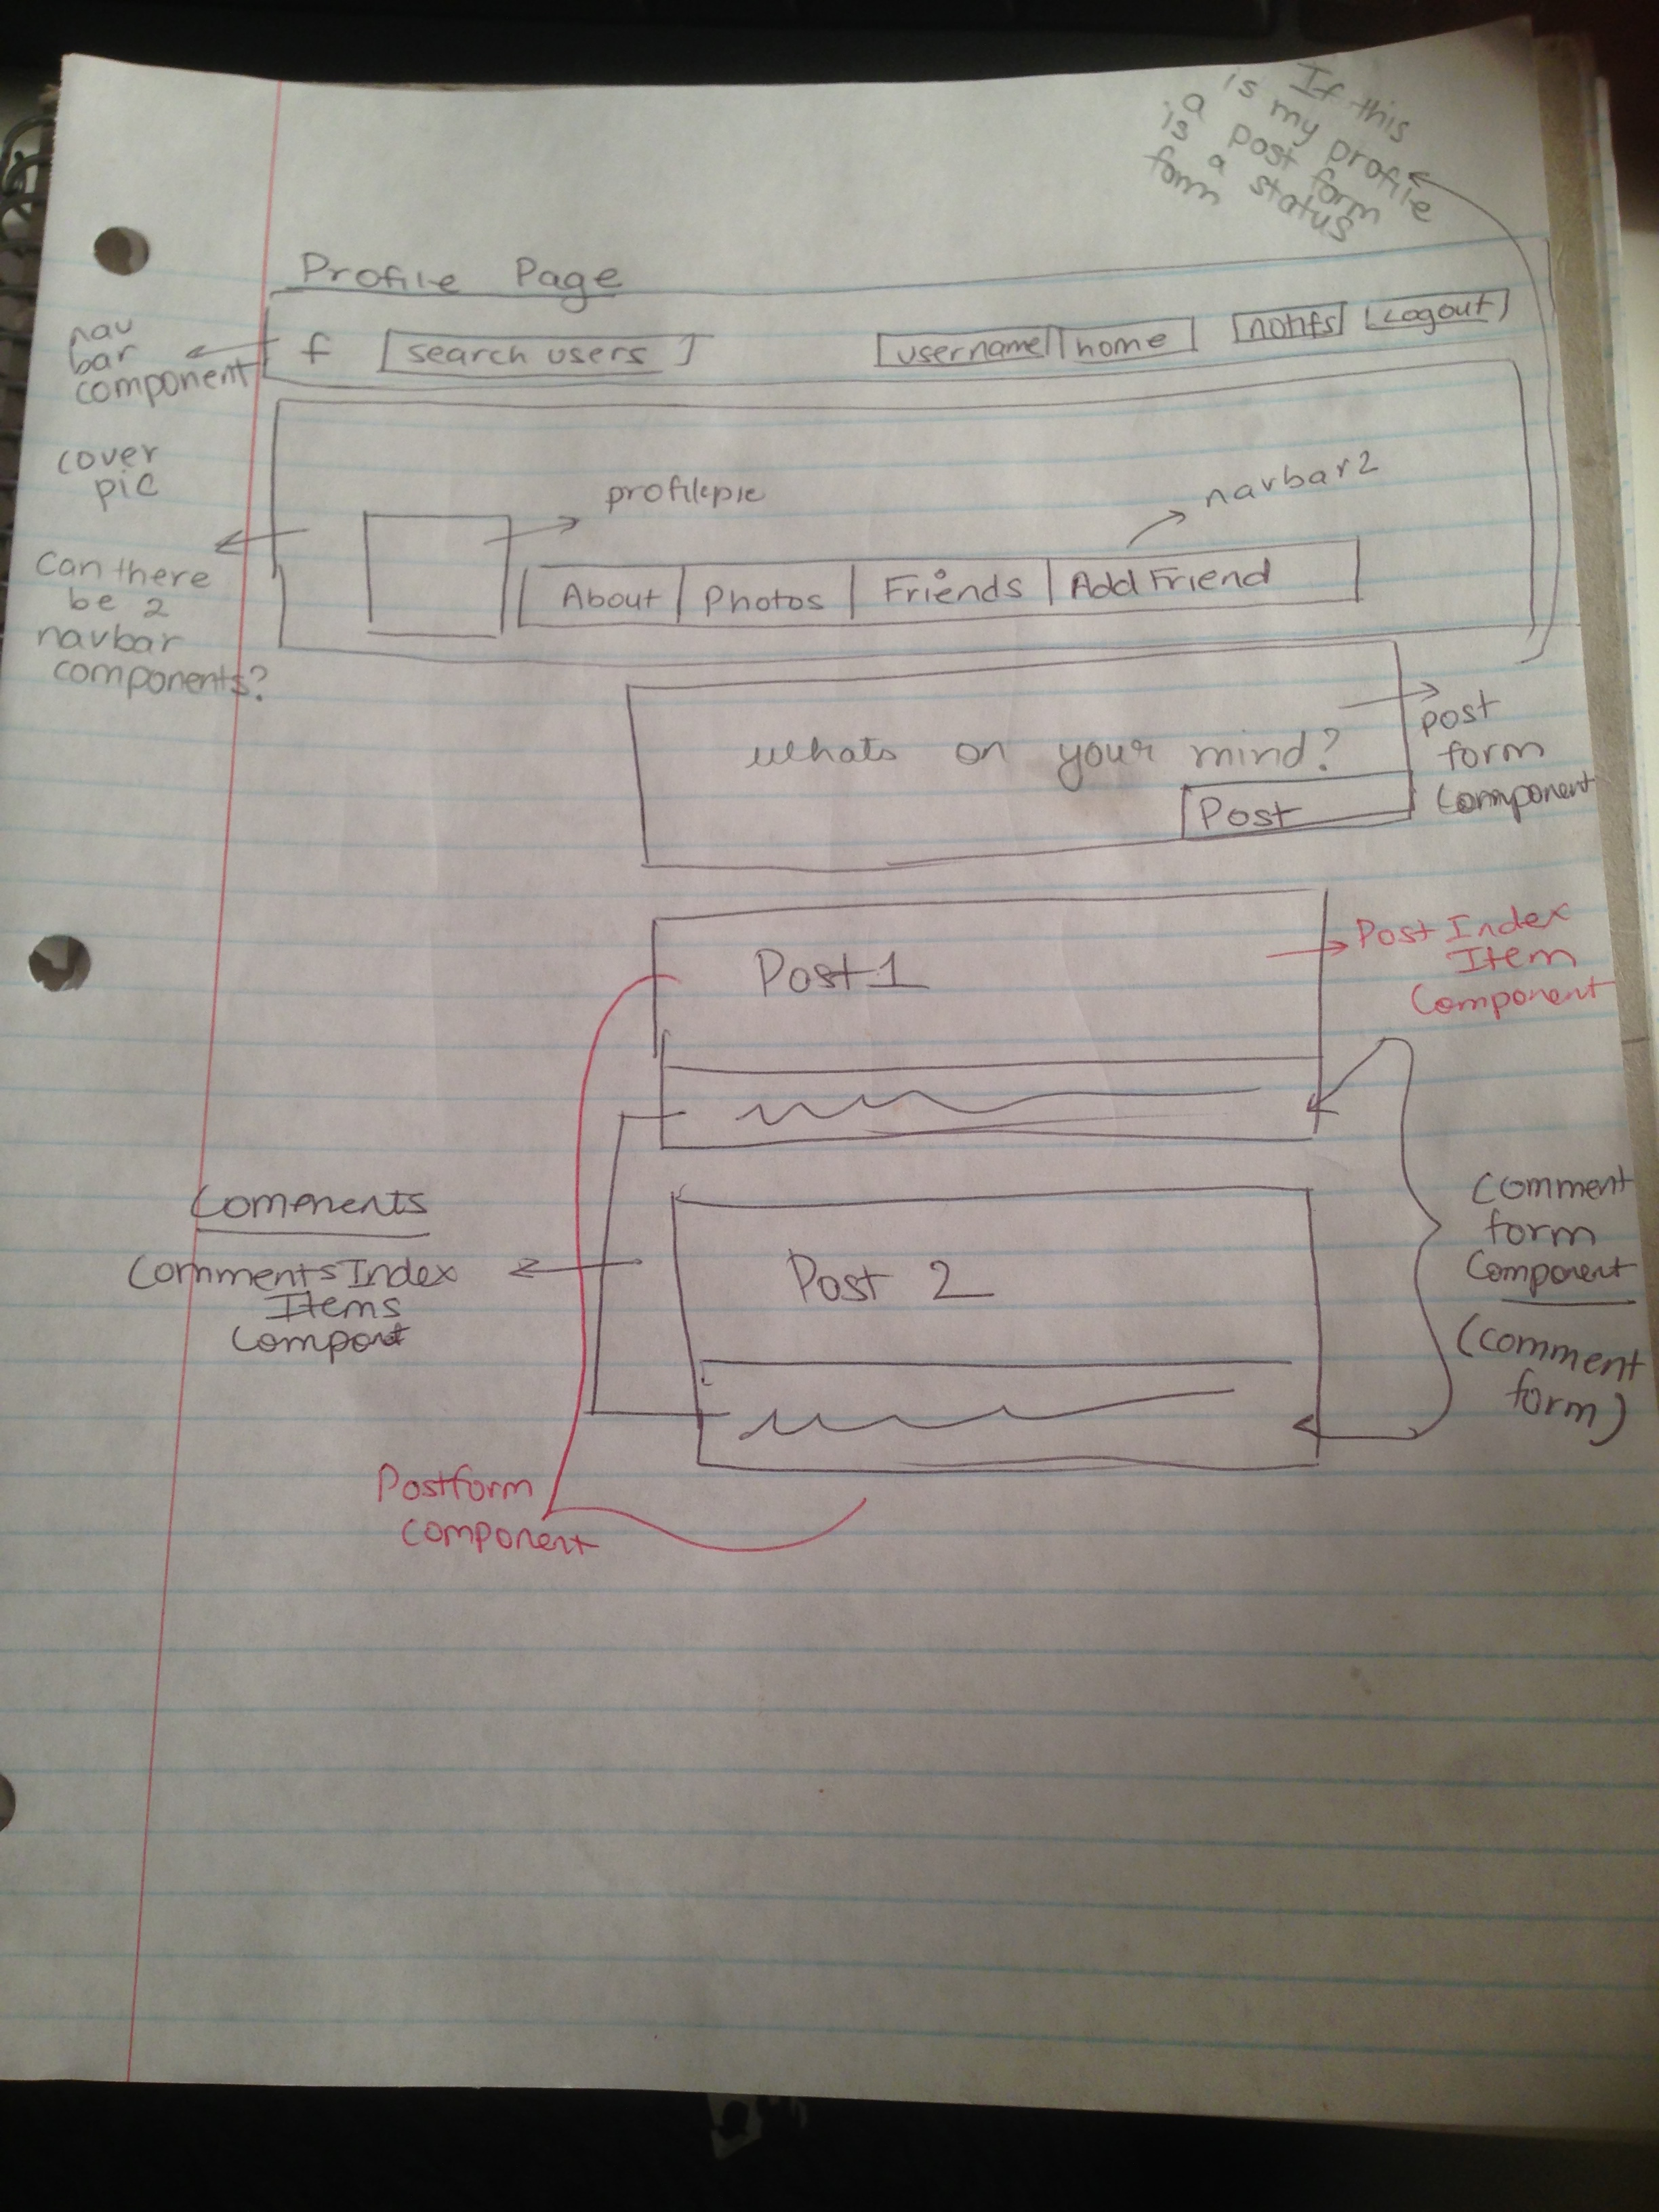 If this
is my profile
a post form
is a status
form
Profile Page
nav
bar
component
f
search users
username
home
notifs
Logout
cover
pic
profilepic
navbar2
Can there
be 2
navbar
components?
About
Photos
Friends
Add Friend
whats on your mind?
Post
post
form
component
Post 1
Post Index
Item
Component
Comments
CommentsIndex
Items
Post 2
Comment
form
Component
(comment
form)
Postform
component